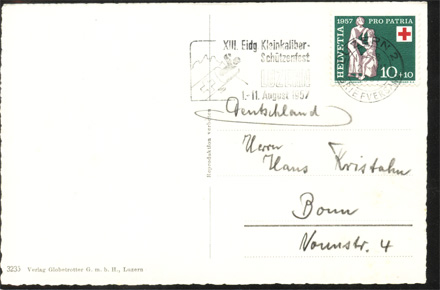 XIII. Eidg Kleinkaliber-
Schützenfest
1.-11. August 1957
1957 PRO PATRIA
HELVETIA
10+10
Deutschland
Herrn
Hans Kristahn
Bonn
Nonnstr. 4
Reproduktion verboten
3233 Verlag Globetrotter G. m. b. H., Luzern